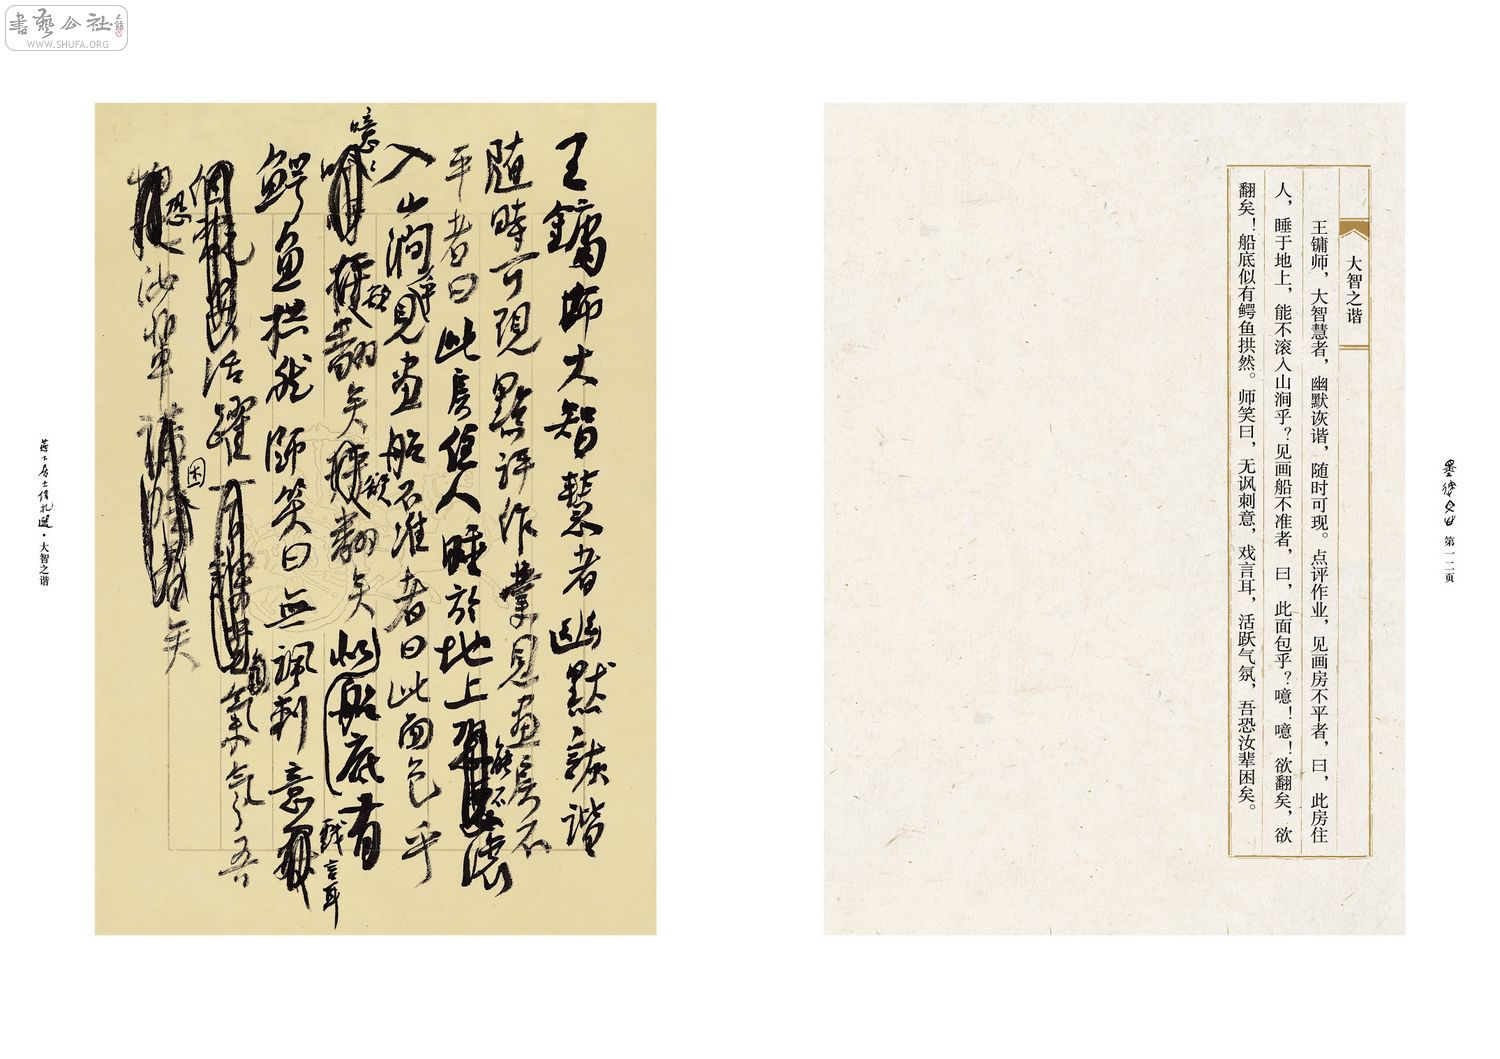 書藝公社
WWW.SHUFA.ORG
王鏞師大智慧者幽默詼諧
随時可現點評作業見畫房不
平者曰此房住人睡於地上能不滚
入山澗乎見畫船不准者曰此面包乎
噫〻欲翻矣欲翻矣船底似有
鳄鱼拱然師笑曰無諷刺意戏言耳
活躍氣氛吾
恐汝辈困矣
大智之谐
王镛师，大智慧者，幽默诙谐，随时可现。点评作业，见画房不平者，曰，此房住
人，睡于地上，能不滚入山涧乎？见画船不准者，曰，此面包乎？噫！噫！欲翻矣，欲
翻矣！船底似有鳄鱼拱然。师笑曰，无讽刺意，戏言耳，活跃气氛，吾恐汝辈困矣。
居士信札選·大智之谐
第一二页